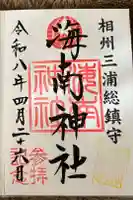 相州三浦総鎮守
海南神社
令和八年四月二十六日
参拝